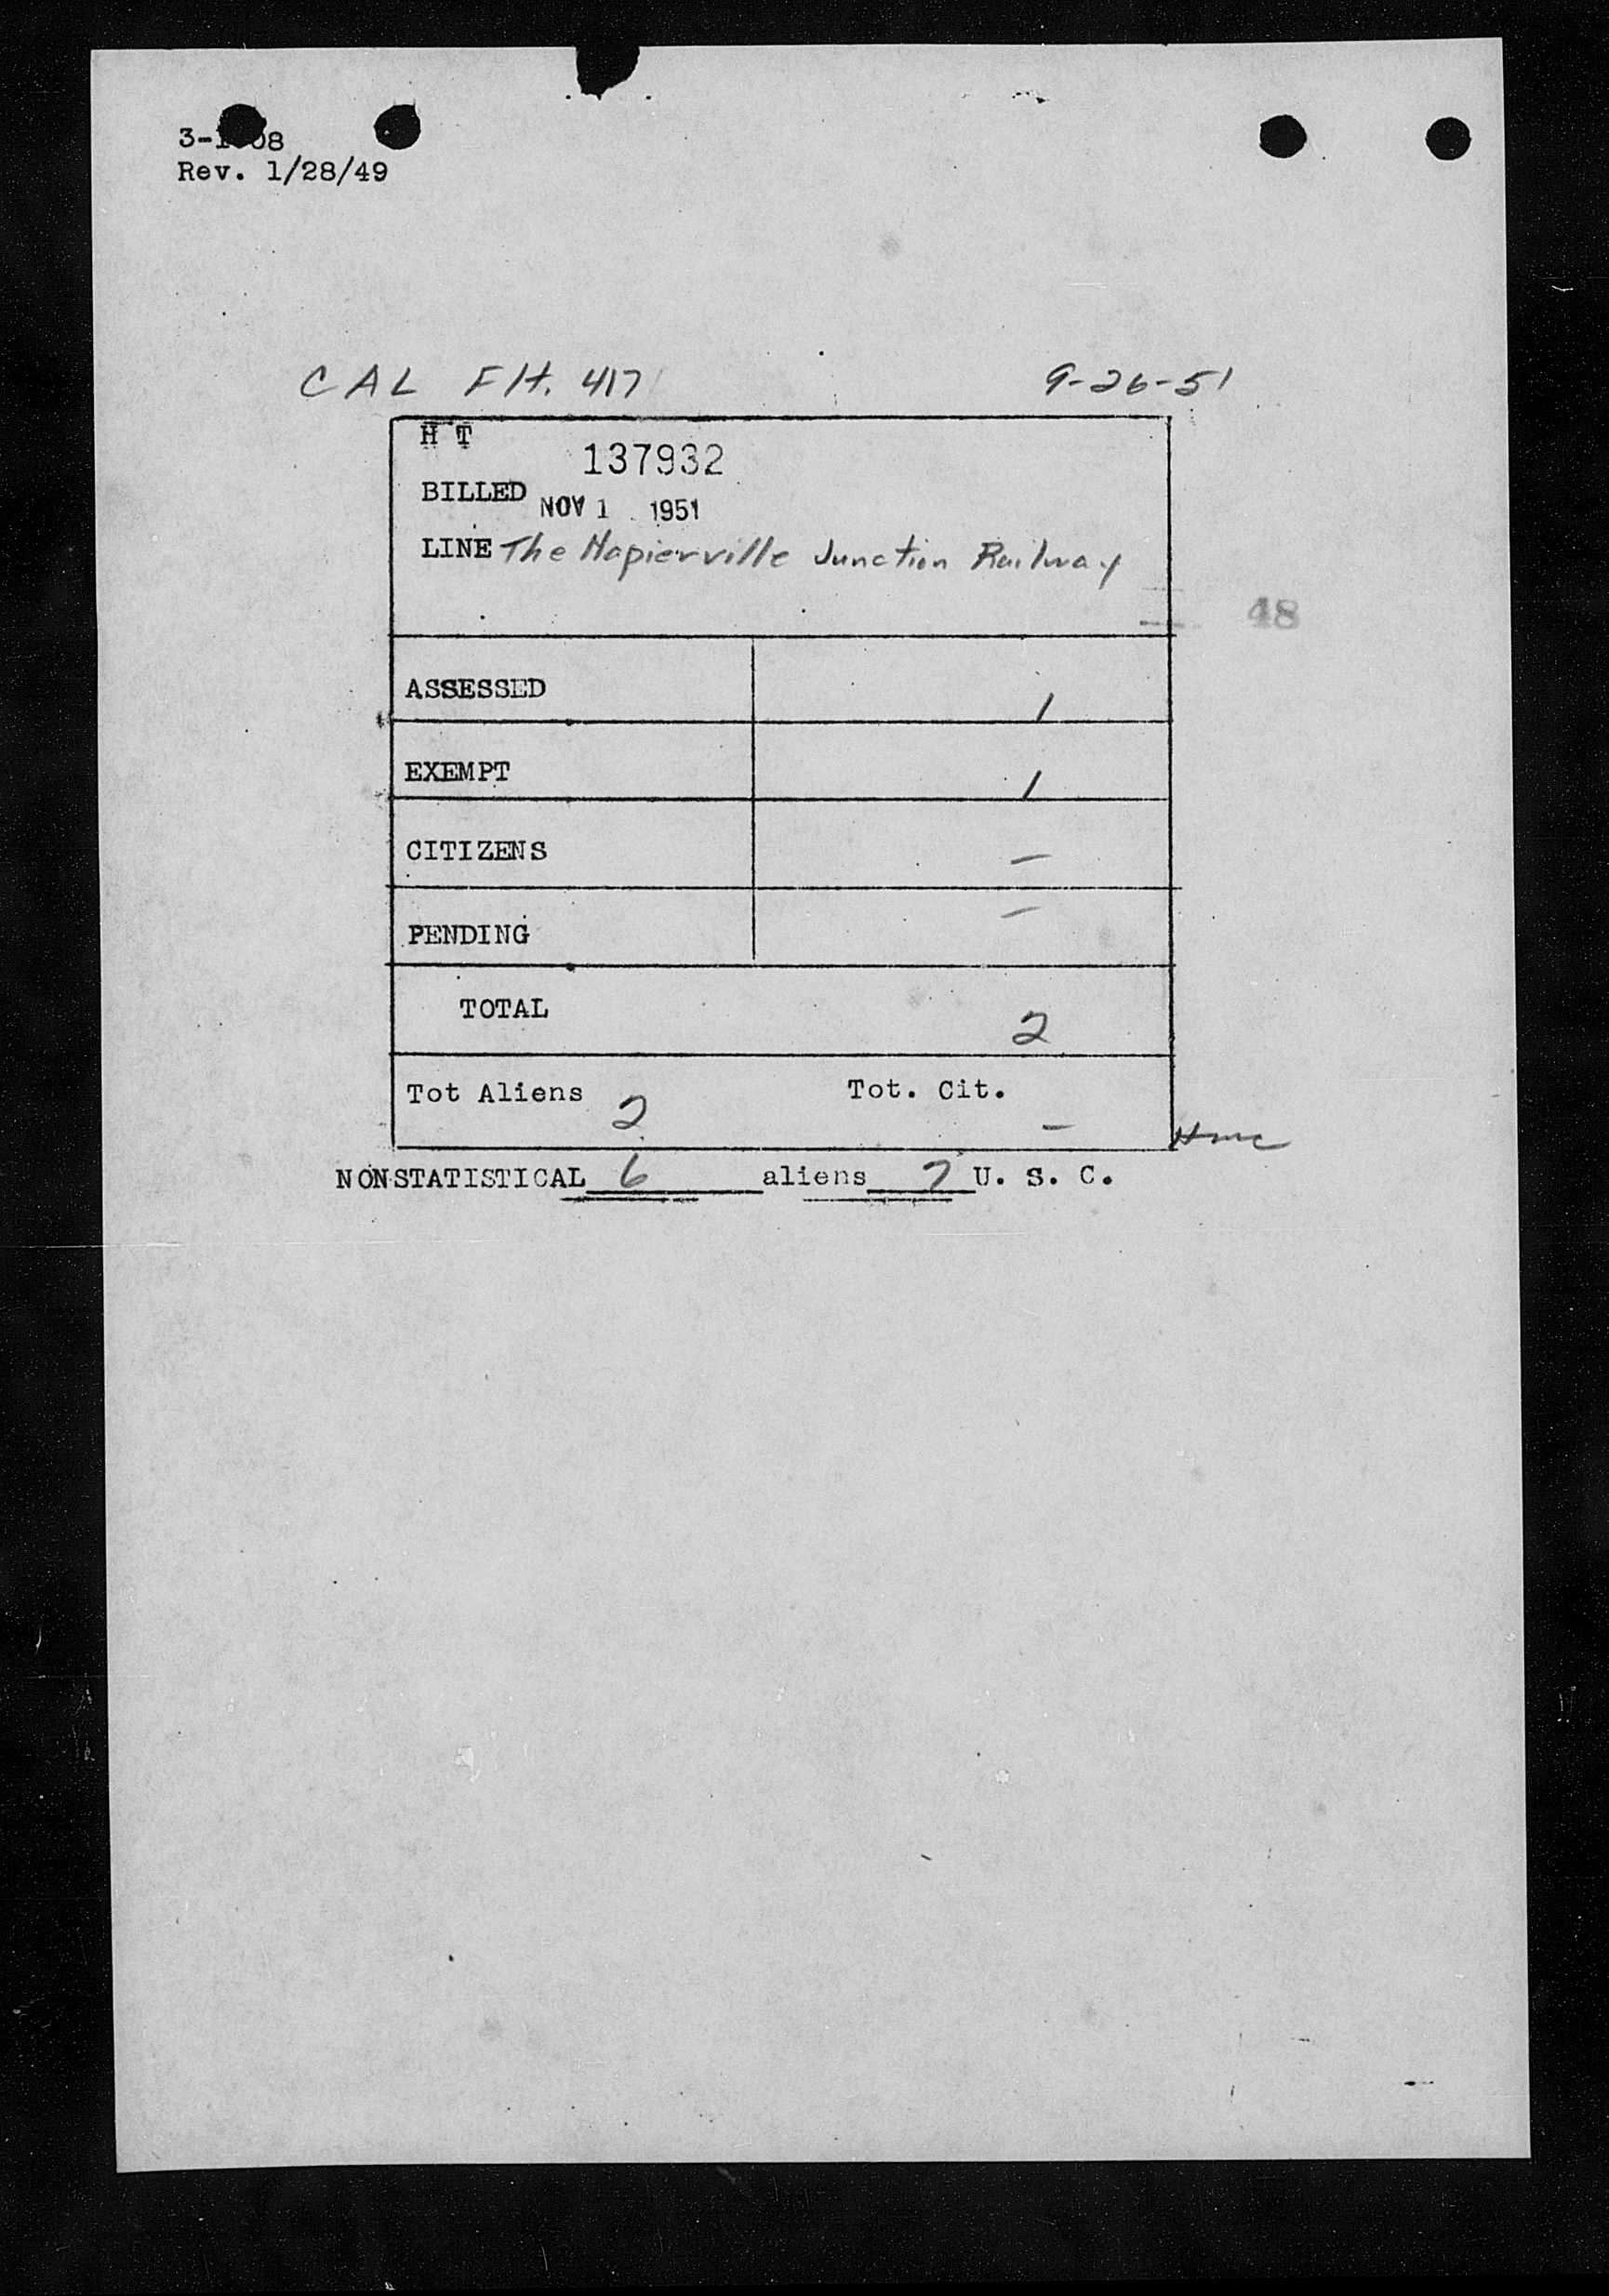 3-1 08
Rev. 1/28/49
CAL FH. 417 9-26-51
H T
137932
BILLED NOV 1 1951
LINE The Napierville Junction Railway
48
ASSESSED 1
EXEMPT 1
CITIZENS –
PENDING –
TOTAL 2
Tot Aliens 2 Tot. Cit. –
NONSTATISTICAL 6 aliens 7 U. S. C.